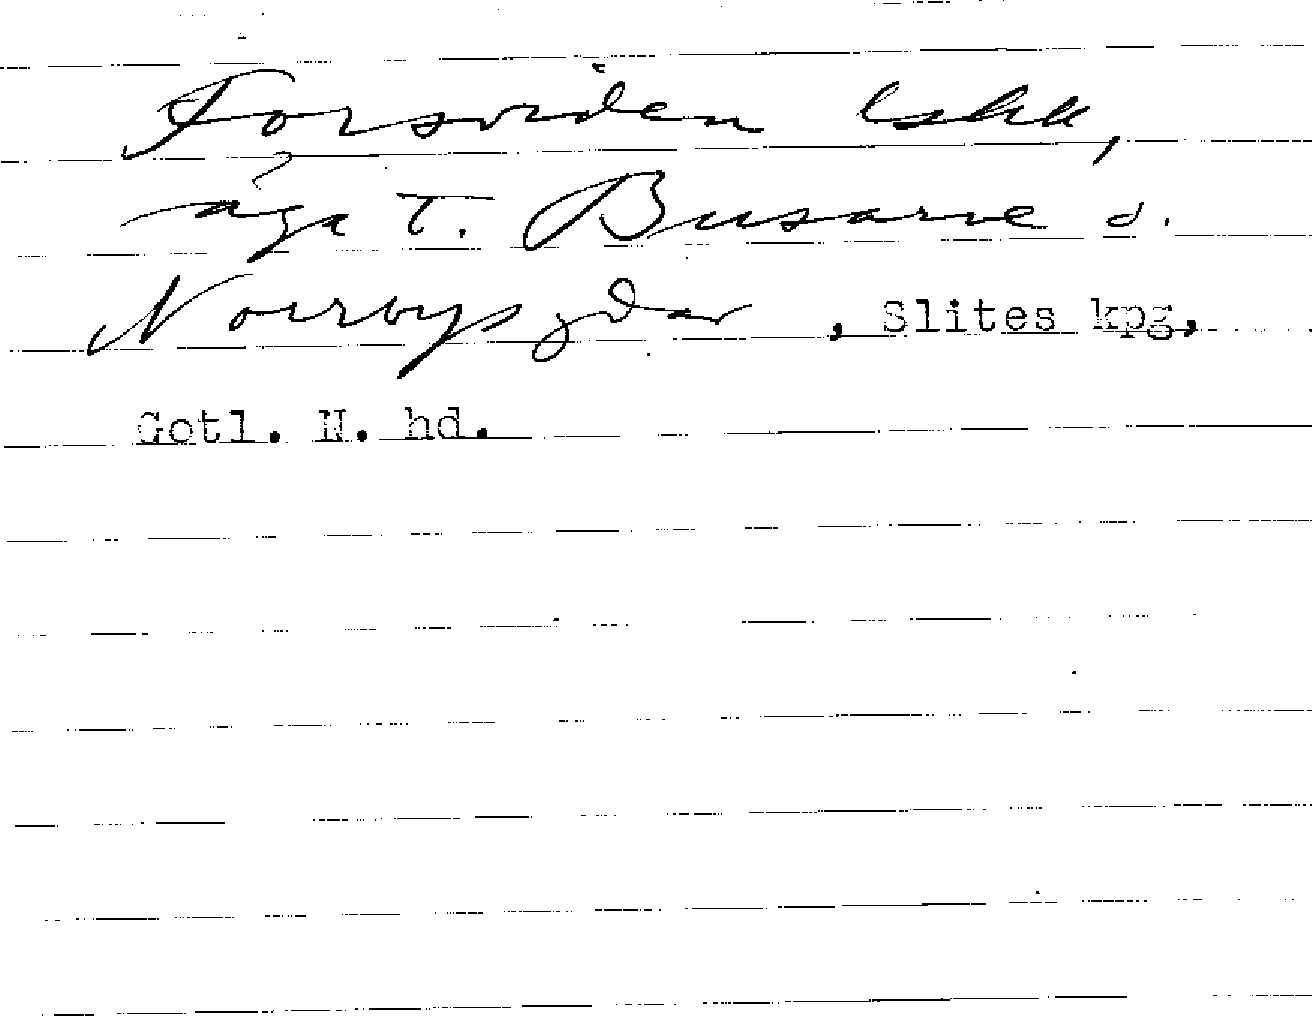 Forsviden lshu,
äga t. Busarve o.
Norrbys gdar, Slites kpg,
Gotl. N. hd.